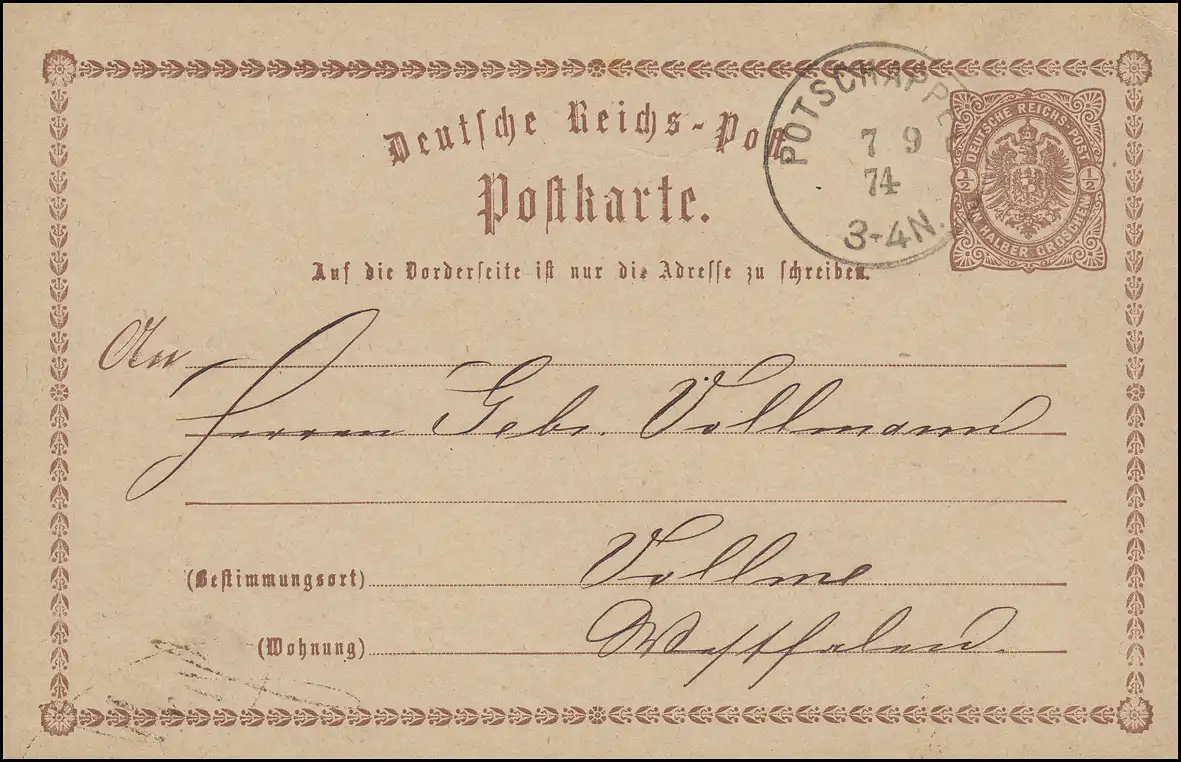 Deutsche Reichs-Post
Postkarte.
Auf die Vorderseite ist nur die Adresse zu schreiben.
POTSCHAPPEL
7 9
74
3-4N.
DEUTSCHE REICHS-POST
1/2 1/2
EIN HALBER GROSCHEN
An
Herren Gebr. Vollmann
(Bestimmungsort) Vollme
(Wohnung) Westfalen.